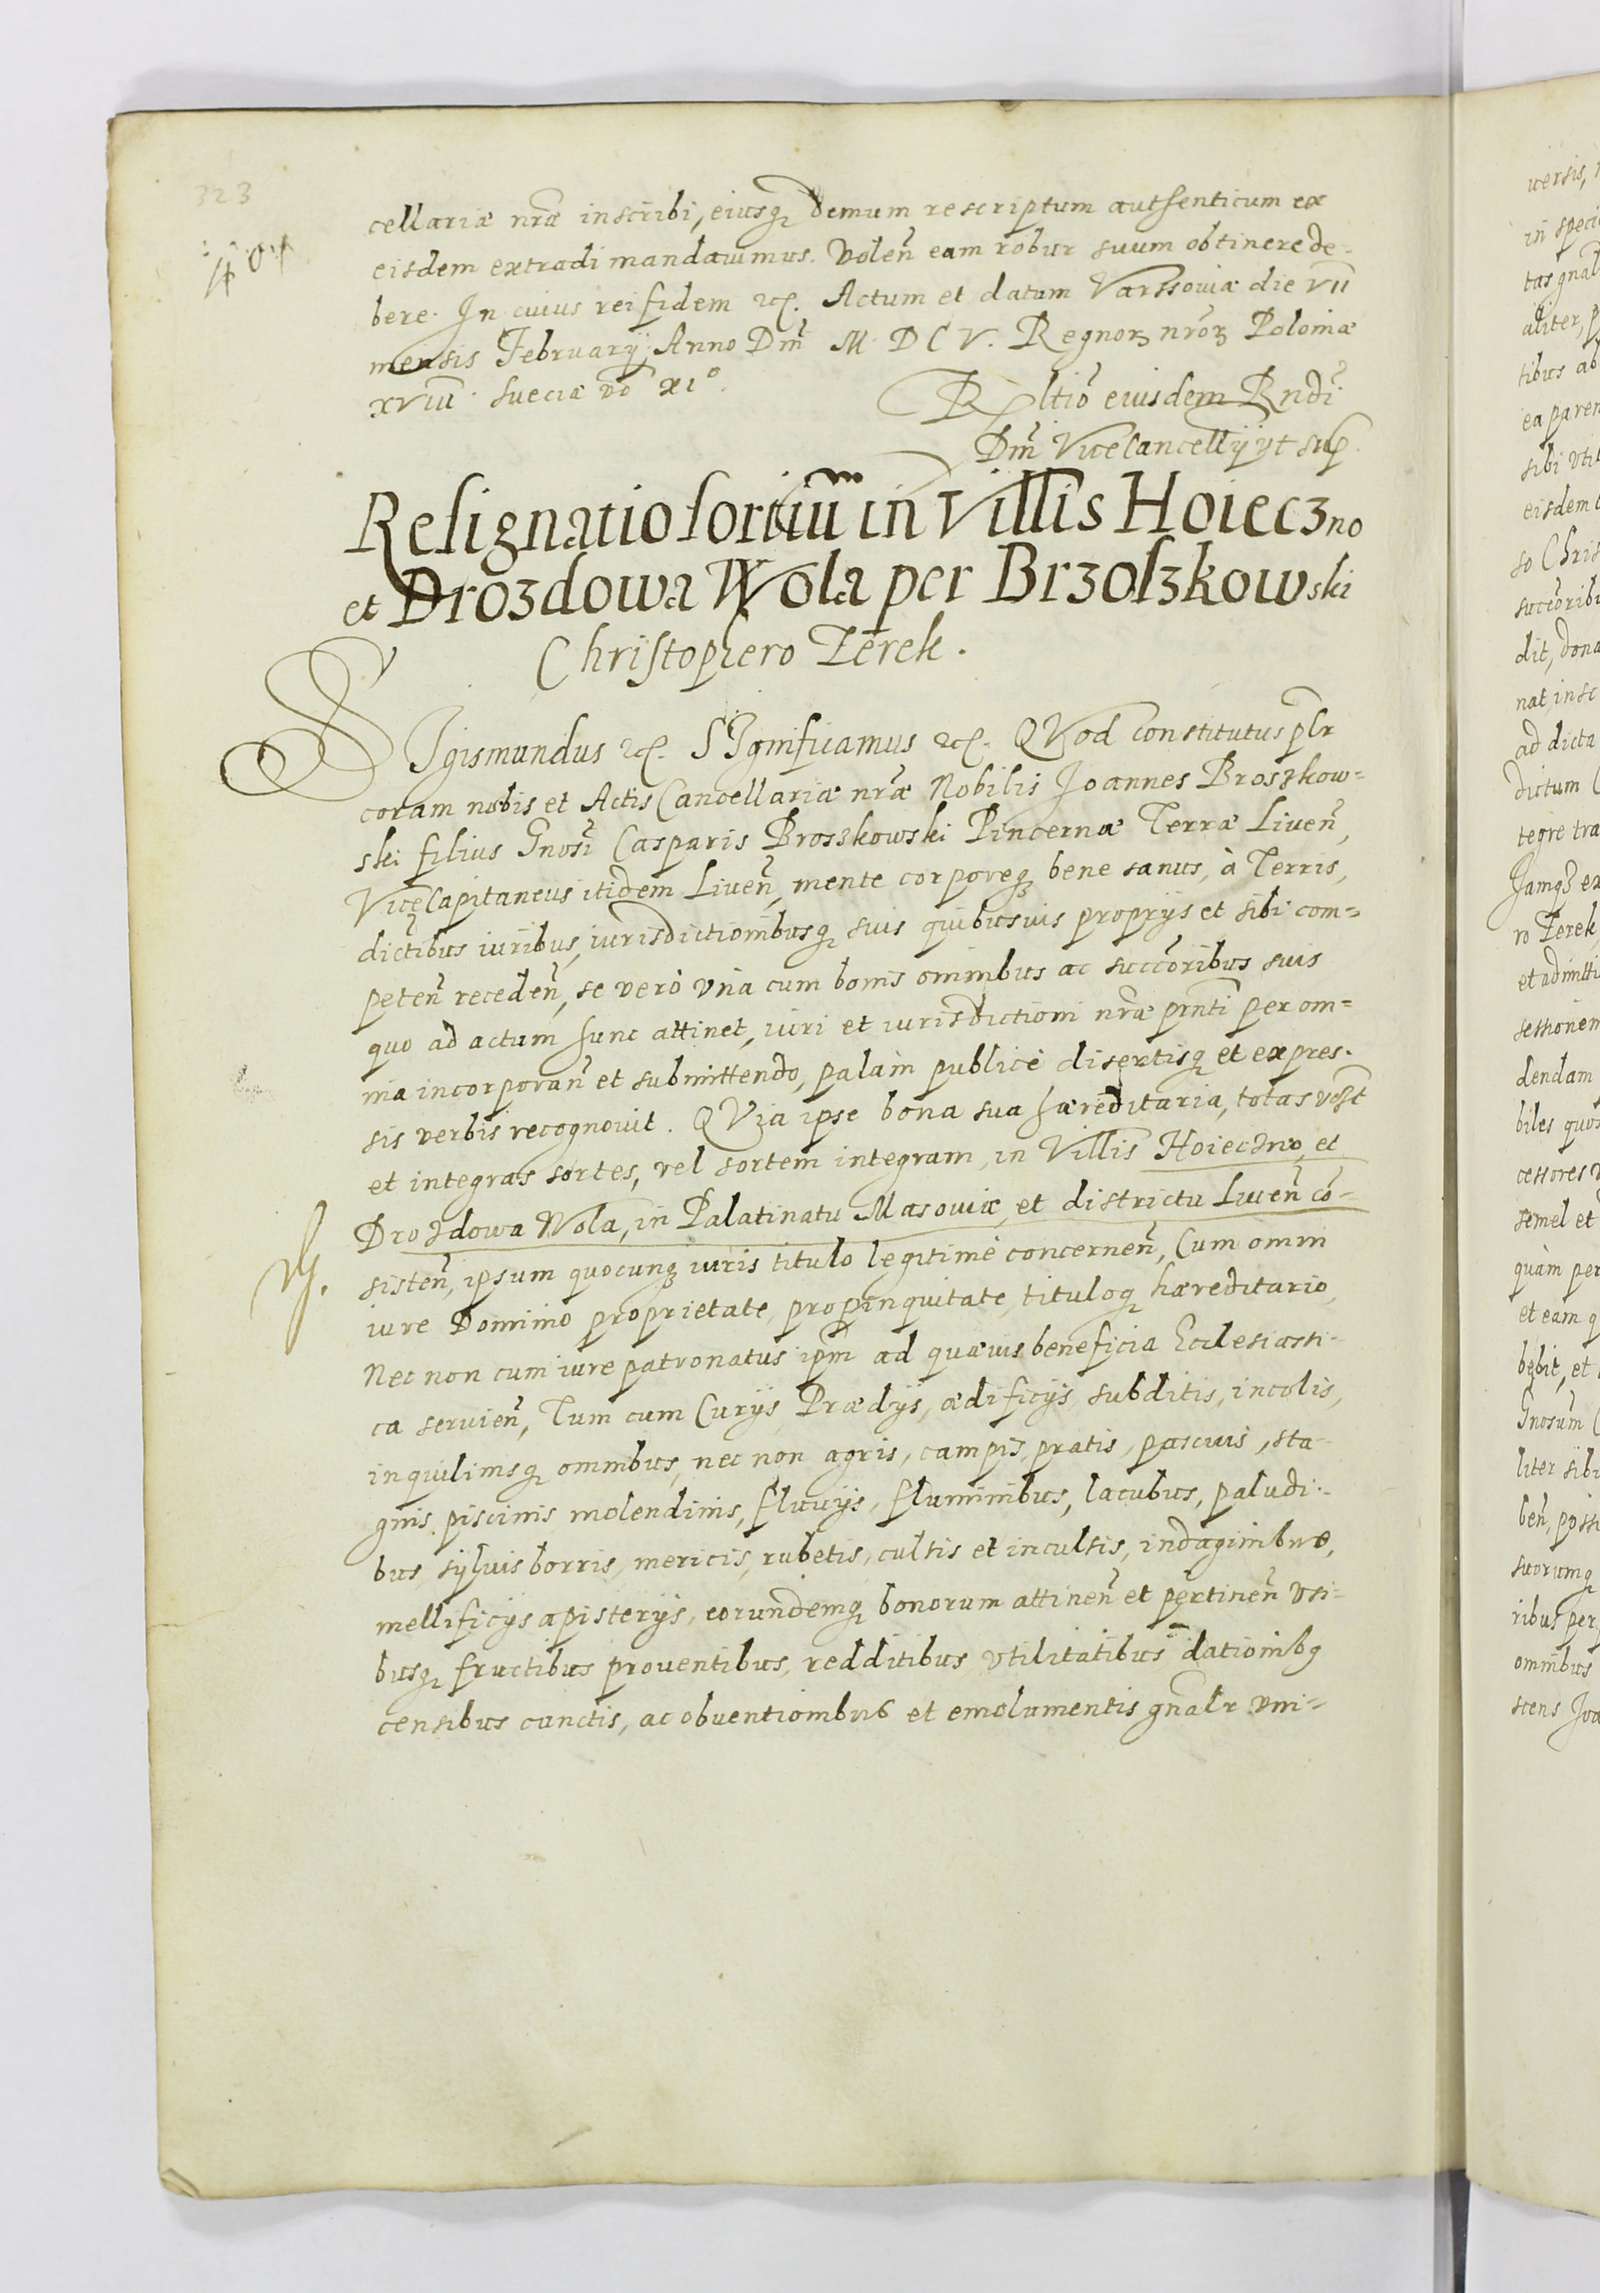 323
cellariæ nræ inscribi, eiusq; demum rescriptum authenticum ex
eisdem extradi mandavimus. Volen̄ eam robur suum obtinere de-
bere. In cuius rei fidem etc. Actum et datum Varssoviæ die VII
mensis February, Anno Dni M. D C V. Regnoꝝ nroꝝ Poloniæ
XVIII. Sueciæ vo XIº.
Rltio eiusdem Rndi
Dni Vicecancellÿ vt sup.
Resignatio sortium in Villis Hoieczno
et Drozdowa Wola per Brzoszkowski
Christophero Terek.
SIgismundus etc. SIgnificamus etc. QVod constitutus plr
coram nobis et Actis Cancellariæ nræ Nobilis Joannes Broszkow-
ski filius Gnosi Casparis Broszkowski Pincernæ Terræ Liven̄,
ViceCapitaneus itidem Liven̄, mente corporeq; bene sanus, à Terris,
dictibus iuribus, iurisdictionibusq; suis quibusvis proprÿs et sibi com-
peten̄ receden̄, se verò vnà cum bonis omnibus ac succoribus suis
quo ad actum hunc attinet, iuri et iurisdictioni nræ prnti per om-
nia incorporan̄ et submittendo, palàm publicè disertisq; et expres-
sis verbis recognovit. QVia ipse bona sua hæreditaria, totas
et integras sortes, vel sortem integram, in Villis Hoieczno, et
Drozdowa Wola, in Palatinatu Masoviæ, et districtu Liven̄ co-
sisten̄, ipsum quocunq; iuris titulo legitimè concernen̄, Cum omni
iure Dominio proprietate, propinquitate, tituloq; hæreditario,
Nec non cum iure patronatus ipm ad quævis beneficia Ecclesiasti-
ca servien̄, Tum cum Curÿs, Prædÿs, ædificÿs, subditis, incolis,
inquilinisq; omnibus, nec non agris, campis, pratis, pascuis, sta-
gnis, piscinis molendinis, fluvÿs, fluminibus, lacubus, paludi-
bus, sylvis borris, mericis, rubetis, cultis et incultis, indaginibus,
mellificÿs apisterÿs, eorundemq; bonorum attinen̄ et pertinen̄ vsi-
busq; fructibus proventibus, redditibus, vtilitatibus dationibq
censibus cunctis, ac obventionibus et emolumentis gnalr vni-